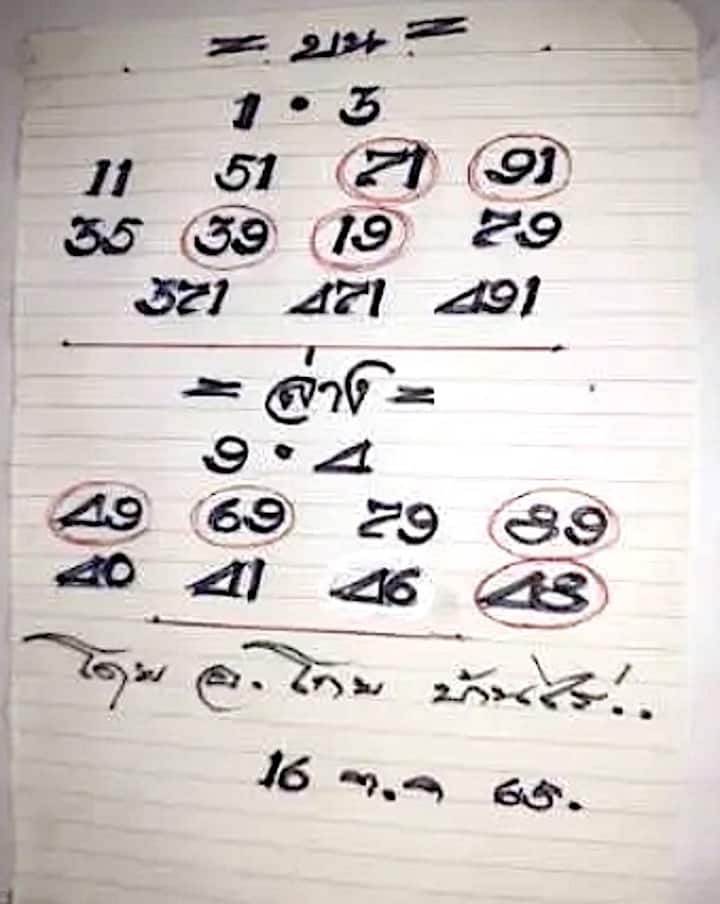 = บน =
1 • 3
11 51 71 91
35 39 19 79
371 471 491
= ล่าง =
9 • 4
49 69 79 89
40 41 46 48
โดม อ. โทม บ้านไร่..
16 ต.ค 65.